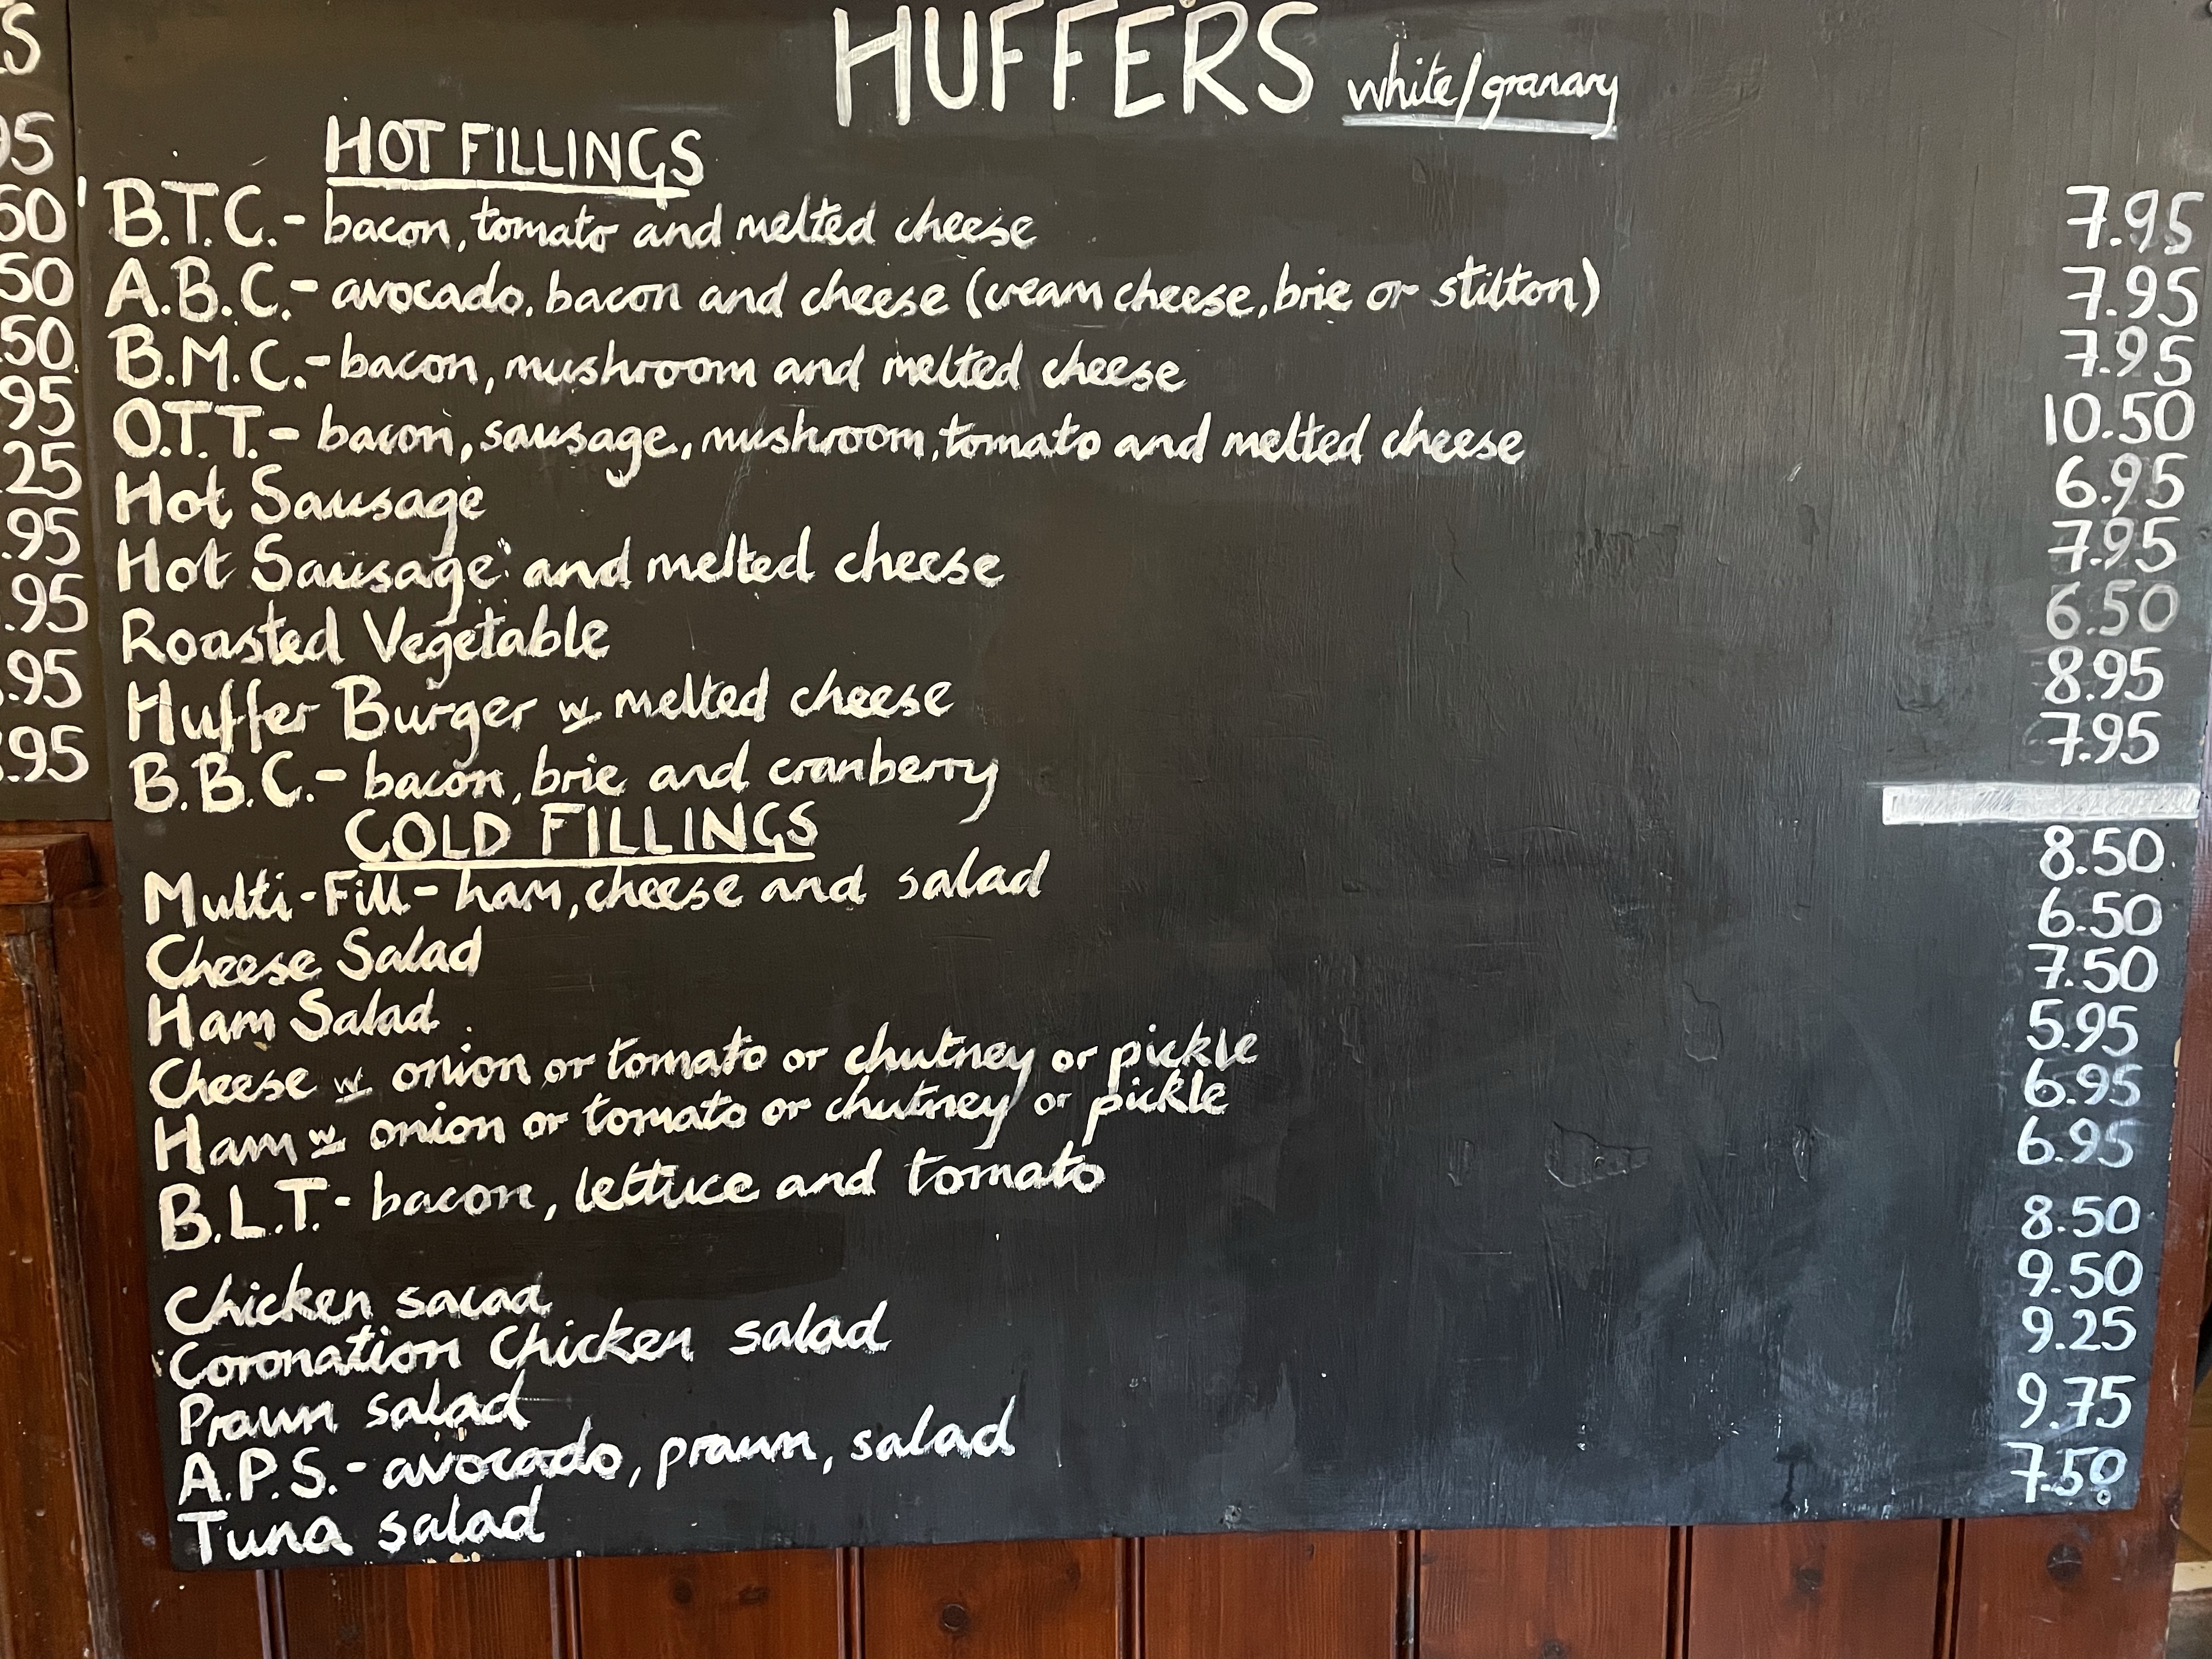 HUFFERS white/granary
HOT FILLINGS
B.T.C. - bacon, tomato and melted cheese 7.95
A.B.C. - avocado, bacon and cheese (cream cheese, brie or stilton) 7.95
B.M.C. - bacon, mushroom and melted cheese 7.95
O.T.T. - bacon, sausage, mushroom, tomato and melted cheese 10.50
Hot Sausage 6.95
Hot Sausage and melted cheese 7.95
Roasted Vegetable 6.50
Huffer Burger w melted cheese 8.95
B.B.C. - bacon, brie and cranberry 7.95
COLD FILLINGS
Multi-Fill - ham, cheese and salad 8.50
Cheese Salad 6.50
Ham Salad 7.50
Cheese w onion or tomato or chutney or pickle 5.95
Ham w onion or tomato or chutney or pickle 6.95
B.L.T. - bacon, lettuce and tomato 6.95
Chicken salad 8.50
Coronation Chicken salad 9.50
Prawn salad 9.25
A.P.S. - avocado, prawn, salad 9.75
Tuna salad 7.50